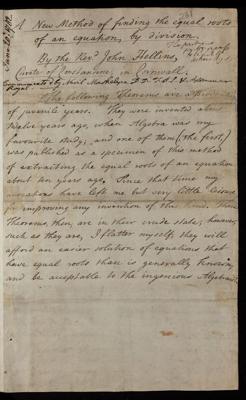 A New Method of finding the equal roots
of an equation, by division.
By the Revd. John Hellins,
Curate of Constantine, in Cornwall.
Communicated by Nevil Maskelyne D.D. F.R.S. & Astronomer
Royal
The following Theorems are
of juvenile years. They were invented about
twelve years ago, when Algebra was my
favourite study; and one of them (the first,)
was published as a specimen of this method
of extracting the equal roots of an equation
about ten years ago. Since that time my
have left me but very little leisure
for improving any invention of the kind. These
Theorems, then, are in their crude state; however,
such as they are, I flatter myself, they will
afford an easier solution of equations that
have equal roots than is generally known,
and be acceptable to the ingenious Algebraist.